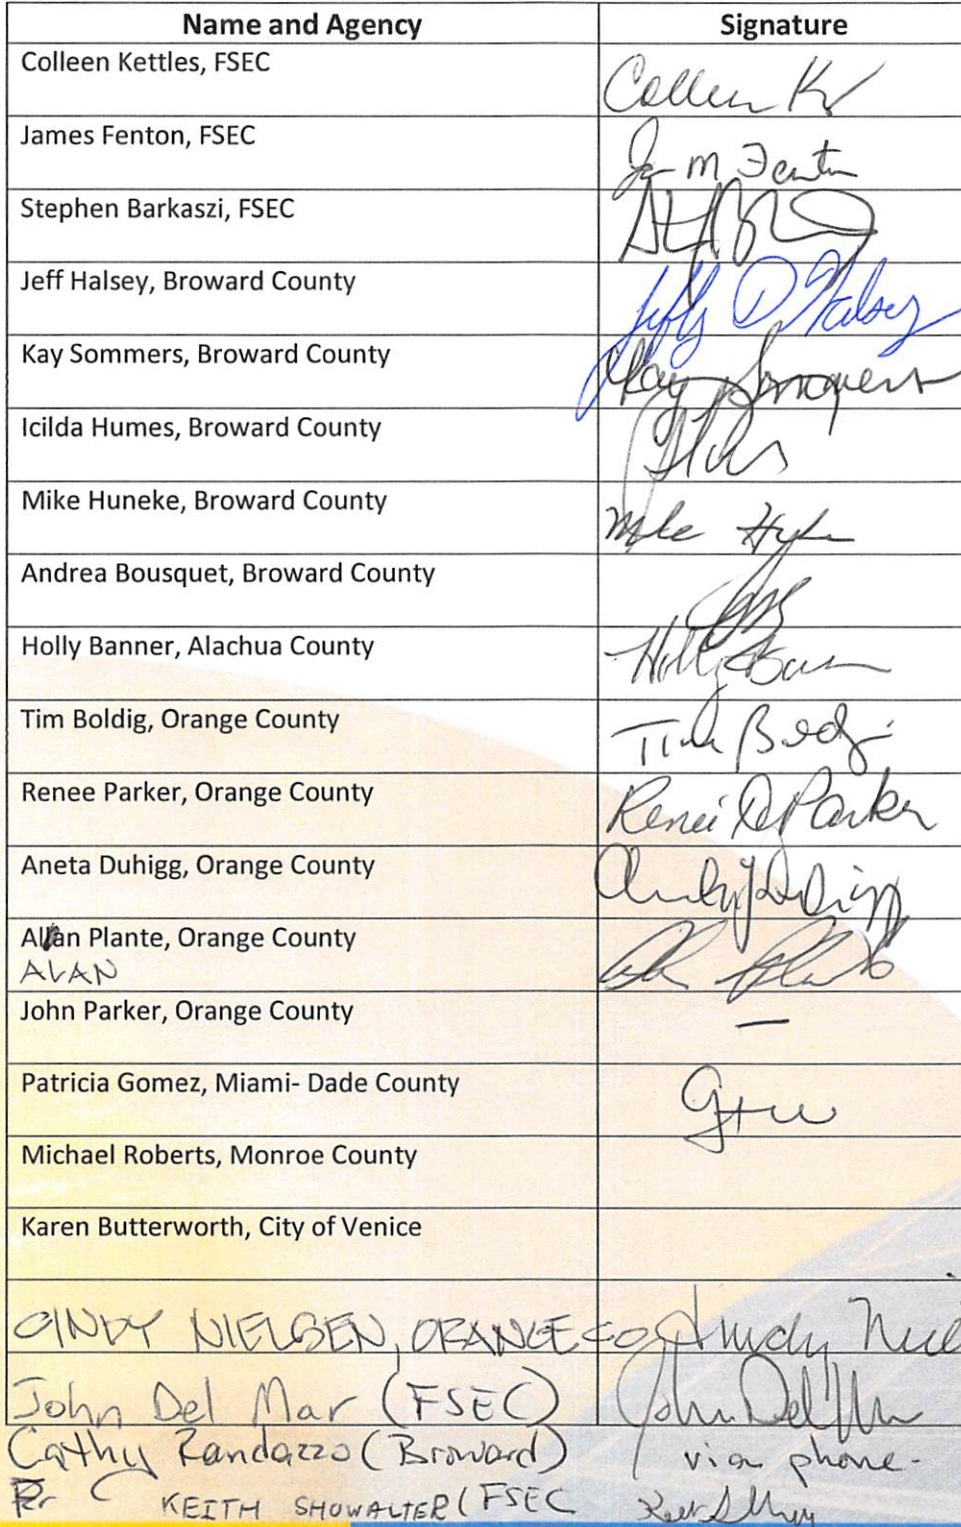 Name and Agency Signature
Colleen Kettles, FSEC Colleen K
James Fenton, FSEC Fenton
Stephen Barkaszi, FSEC
Jeff Halsey, Broward County D Halsey
Kay Sommers, Broward County Kay
Icilda Humes, Broward County
Mike Huneke, Broward County Mike
Andrea Bousquet, Broward County
Holly Banner, Alachua County Holly
Tim Boldig, Orange County Tim
Renee Parker, Orange County Renee D Parker
Aneta Duhigg, Orange County
Allan Plante, Orange County
ALAN
John Parker, Orange County —
Patricia Gomez, Miami- Dade County
Michael Roberts, Monroe County
Karen Butterworth, City of Venice
CINDY NIELSEN, ORANGE CO
John Del Mar (FSEC) John Del
Cathy Randazzo (Broward) via phone.
KEITH SHOWALTER (FSEC